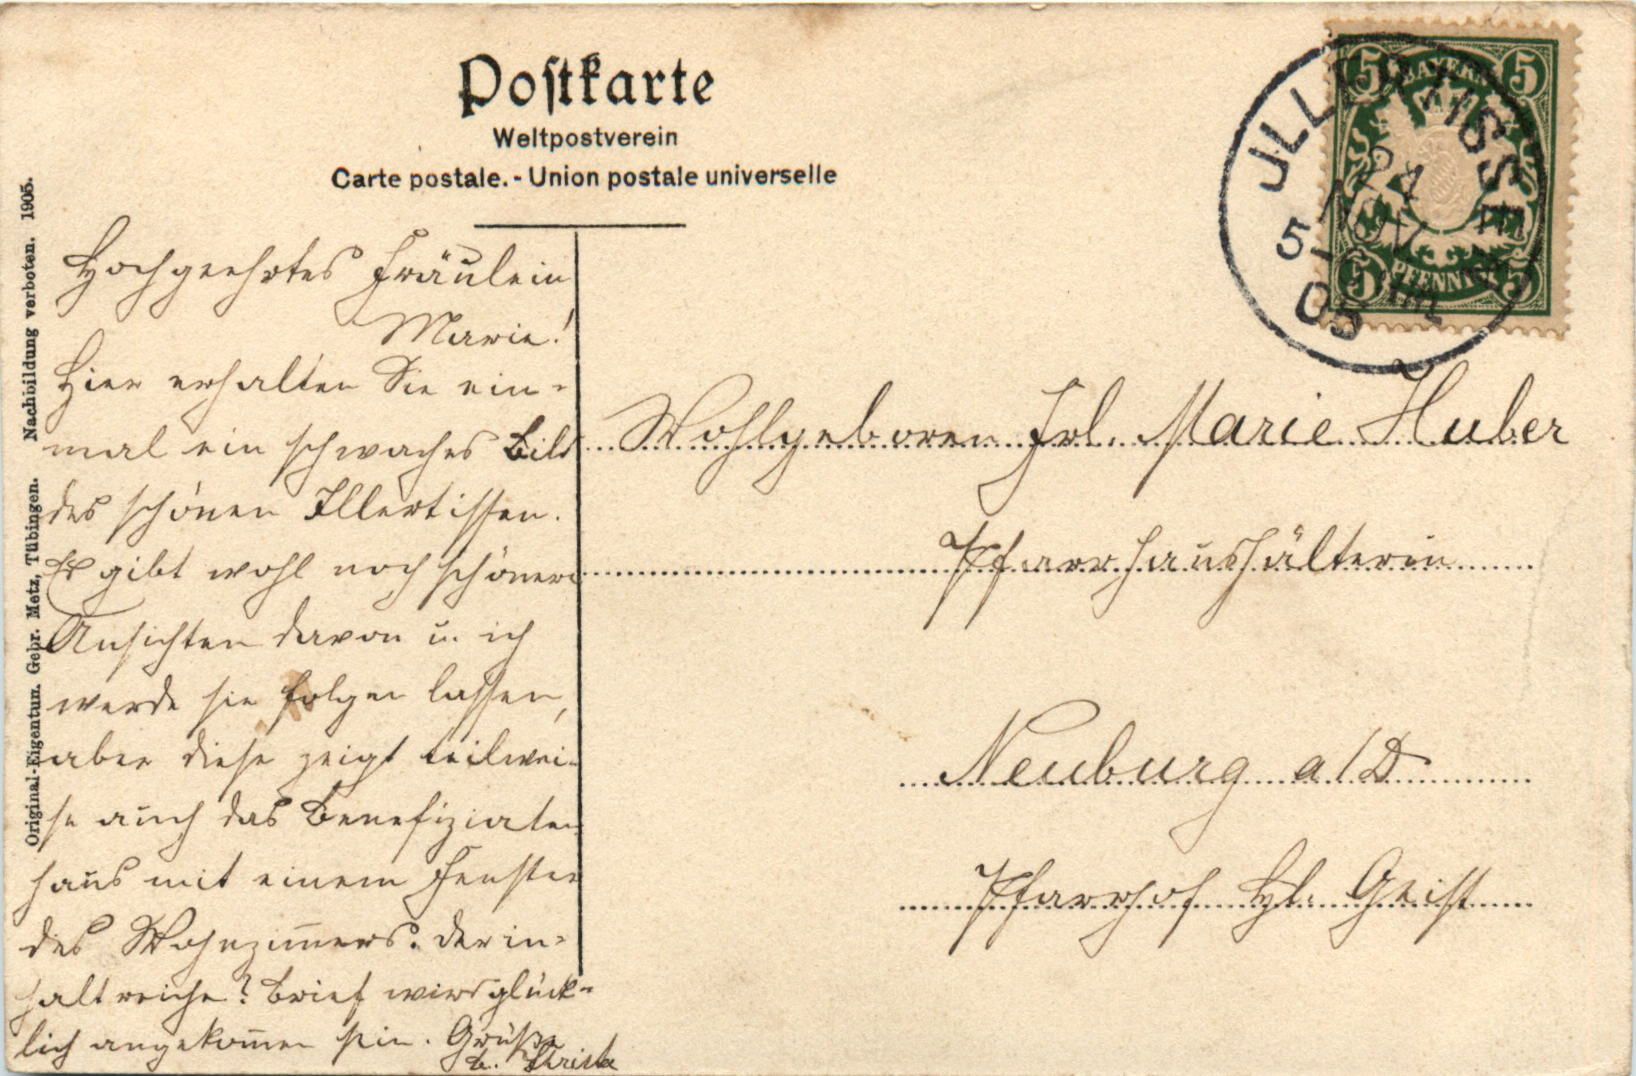 Postkarte
Weltpostverein
Carte postale. - Union postale universelle
BAYERN
5 5
PFENNIG
5 5
JLLERTISSEN
24
NOV
5
05
Nachbildung verboten. 1905.
Original-Eigentum. Gebr. Metz, Tübingen.
Hochgeehrtes Fräulein
Marie!
Hier erhalten Sie ein-
mal ein schwaches Bild
des schönen Illertissen.
Es gibt wohl noch schönere
Ansichten davon u. ich
werde sie folgen lassen,
aber diese zeigt teilwei-
se auch das Benefiziaten
haus mit einem Fenster
des Wohnzimmers. Der in-
haltreiche? Brief wird glück-
lich angekommen sein. Grüße
Wohlgeboren Frl. Marie Huber
Pfarrhaushälterin
Neuburg a/D
Pfarrhof Hl. Geist